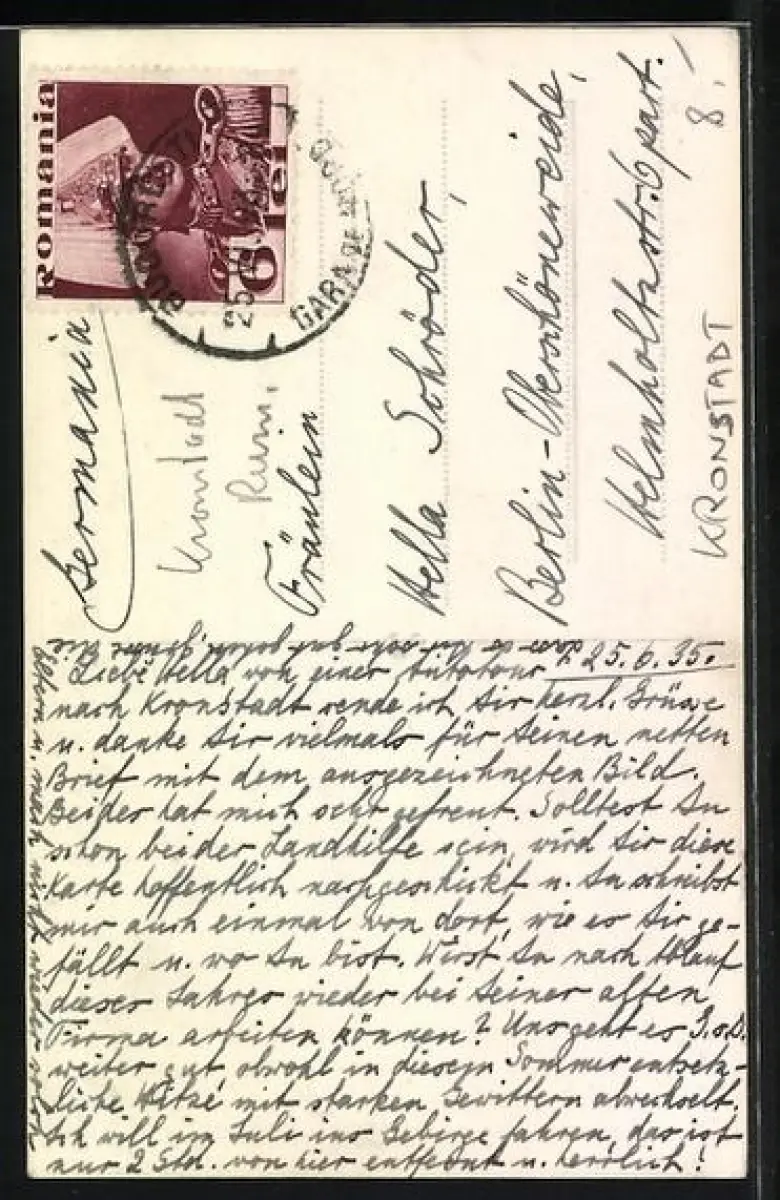 Romania
6 lei
BUCUREȘTI
GARA DE
25
Germania
Kronstadt
Rum.
Fräulein
Hella Schröder,
Berlin-Oberschöneweide,
Helmholtzstr. 6 part.
8.-
KRONSTADT
25.6.35.
Liebe Hella von einer Autotour
nach Kronstadt sende ich Dir herzl. Grüsse
u. danke Dir vielmals für Deinen netten
Brief mit dem ausgezeichneten Bild.
Beides hat mich sehr gefreut. Solltest Du
schon bei der Landhilfe sein, wird Dir diese
Karte hoffentlich nachgeschickt u. Du schreibst
mir auch einmal von dort, wie es Dir ge-
fällt u. wo Du bist. Wirst Du nach Ablauf
dieses Jahres wieder bei Deiner alten
Firma arbeiten können? Uns geht es G.s.D.
weiter gut, obwohl in diesem Sommer entsetz-
liche Hitze mit starken Gewittern abwechselt.
Ich will im Juli ins Gebirge fahren, das ist
nur 2 Std. von hier entfernt u. herrlich!
Eltern u.